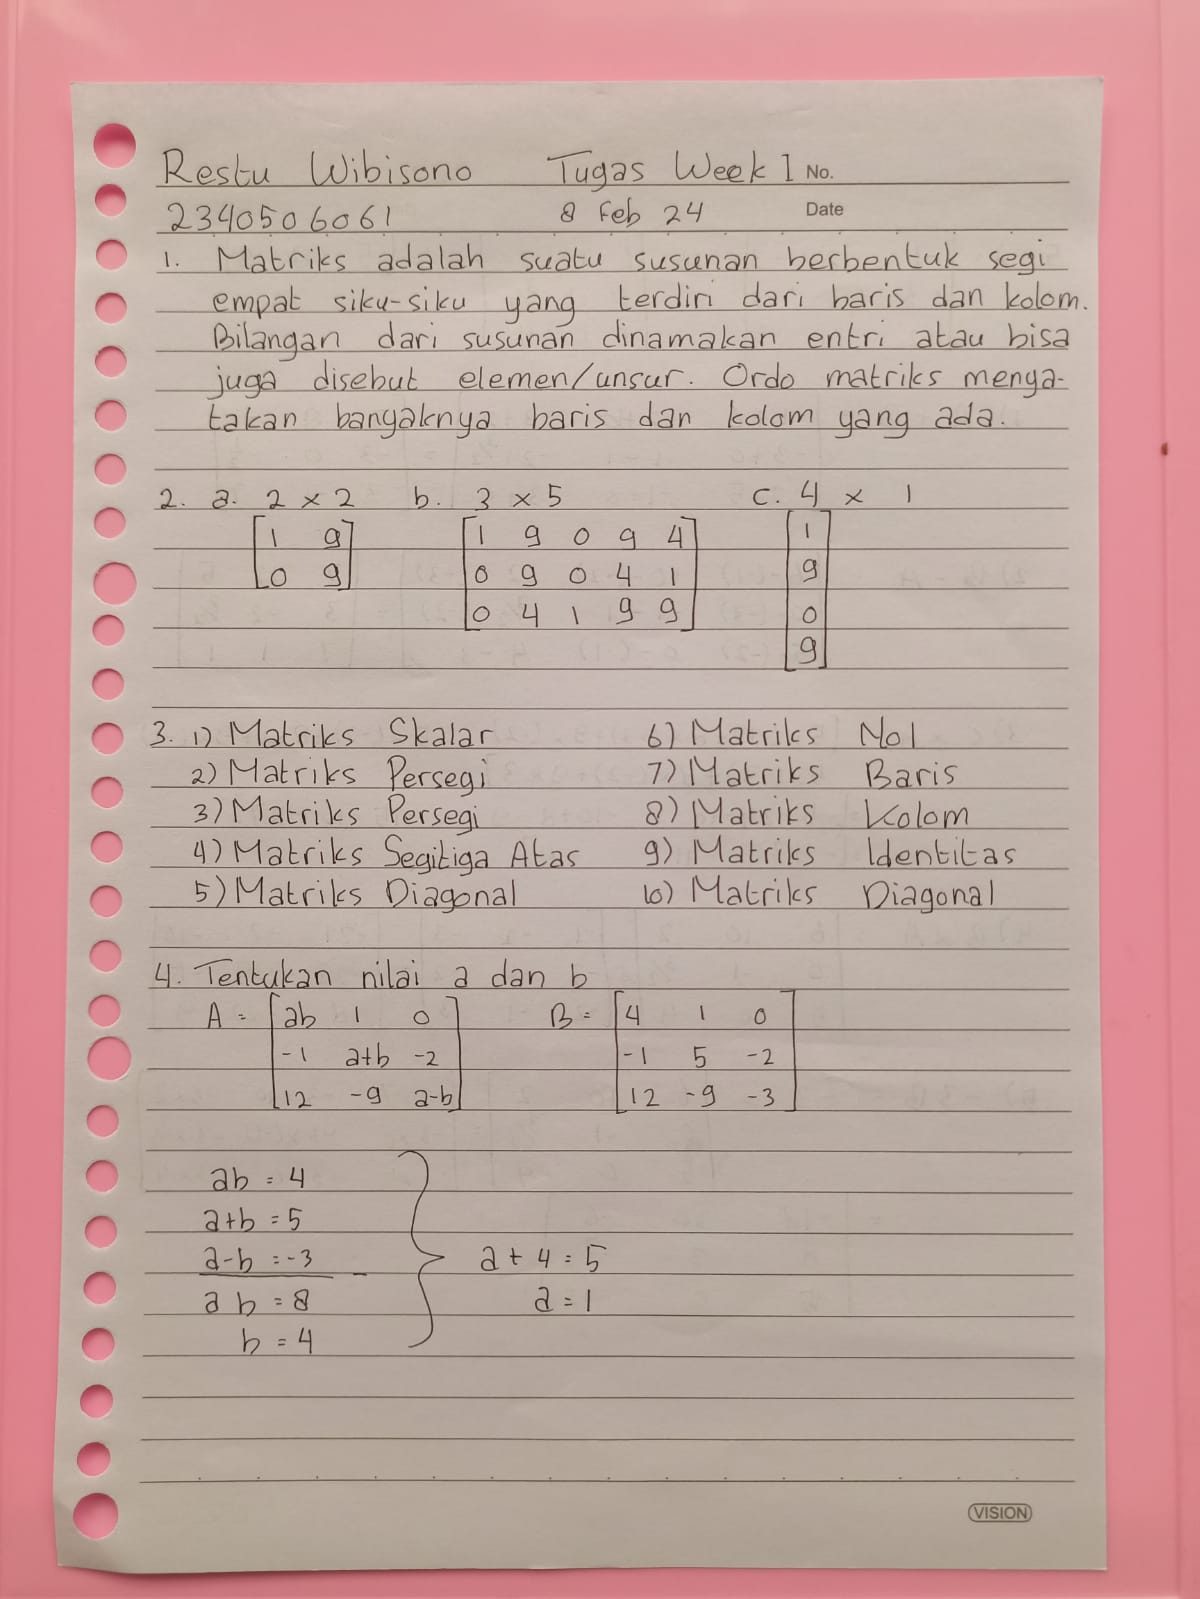 Restu Wibisono Tugas Week 1 No.
2340506061 8 Feb 24 Date
1. Matriks adalah suatu susunan berbentuk segi
empat siku-siku yang terdiri dari baris dan kolom.
Bilangan dari susunan dinamakan entri atau bisa
juga disebut elemen/unsur. Ordo matriks menya-
takan banyaknya baris dan kolom yang ada.
2. a. 2 x 2 b. 3 x 5 c. 4 x 1
[1 9] [1 9 0 9 4] [1]
[0 9] [0 9 0 4 1] [9]
[0 4 1 9 9] [0]
[9]
3. 1) Matriks Skalar 6) Matriks Nol
2) Matriks Persegi 7) Matriks Baris
3) Matriks Persegi 8) Matriks Kolom
4) Matriks Segitiga Atas 9) Matriks Identitas
5) Matriks Diagonal 10) Matriks Diagonal
4. Tentukan nilai a dan b
A = [ab 1 0] B = [4 1 0]
[-1 a+b -2] [-1 5 -2]
[12 -9 a-b] [12 -9 -3]
ab = 4
a+b = 5
a-b = -3 - a + 4 = 5
a b = 8 a = 1
b = 4
VISION